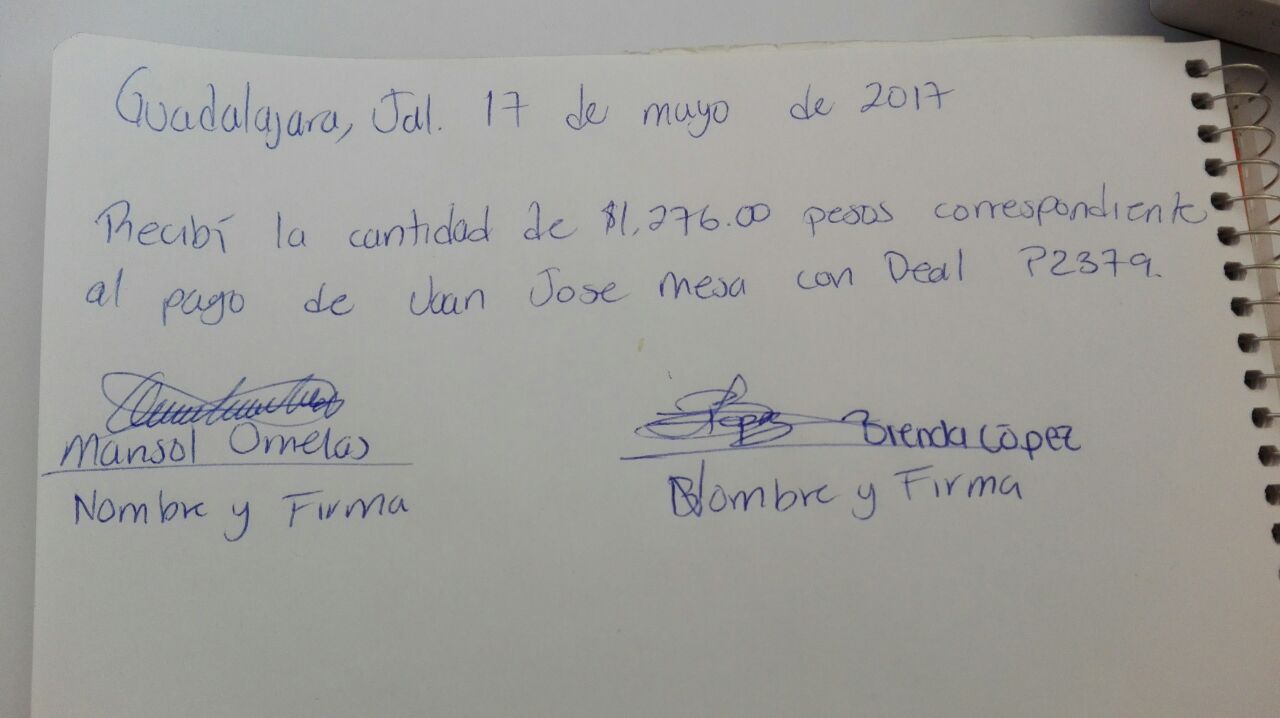 Guadalajara, Jal. 17 de mayo de 2017
Recibí la cantidad de $1,276.00 pesos correspondiente
al pago de Juan Jose mesa con Deal P2379.
Marisol Ornelas
Brenda López
Nombre y Firma
Nombre y Firma